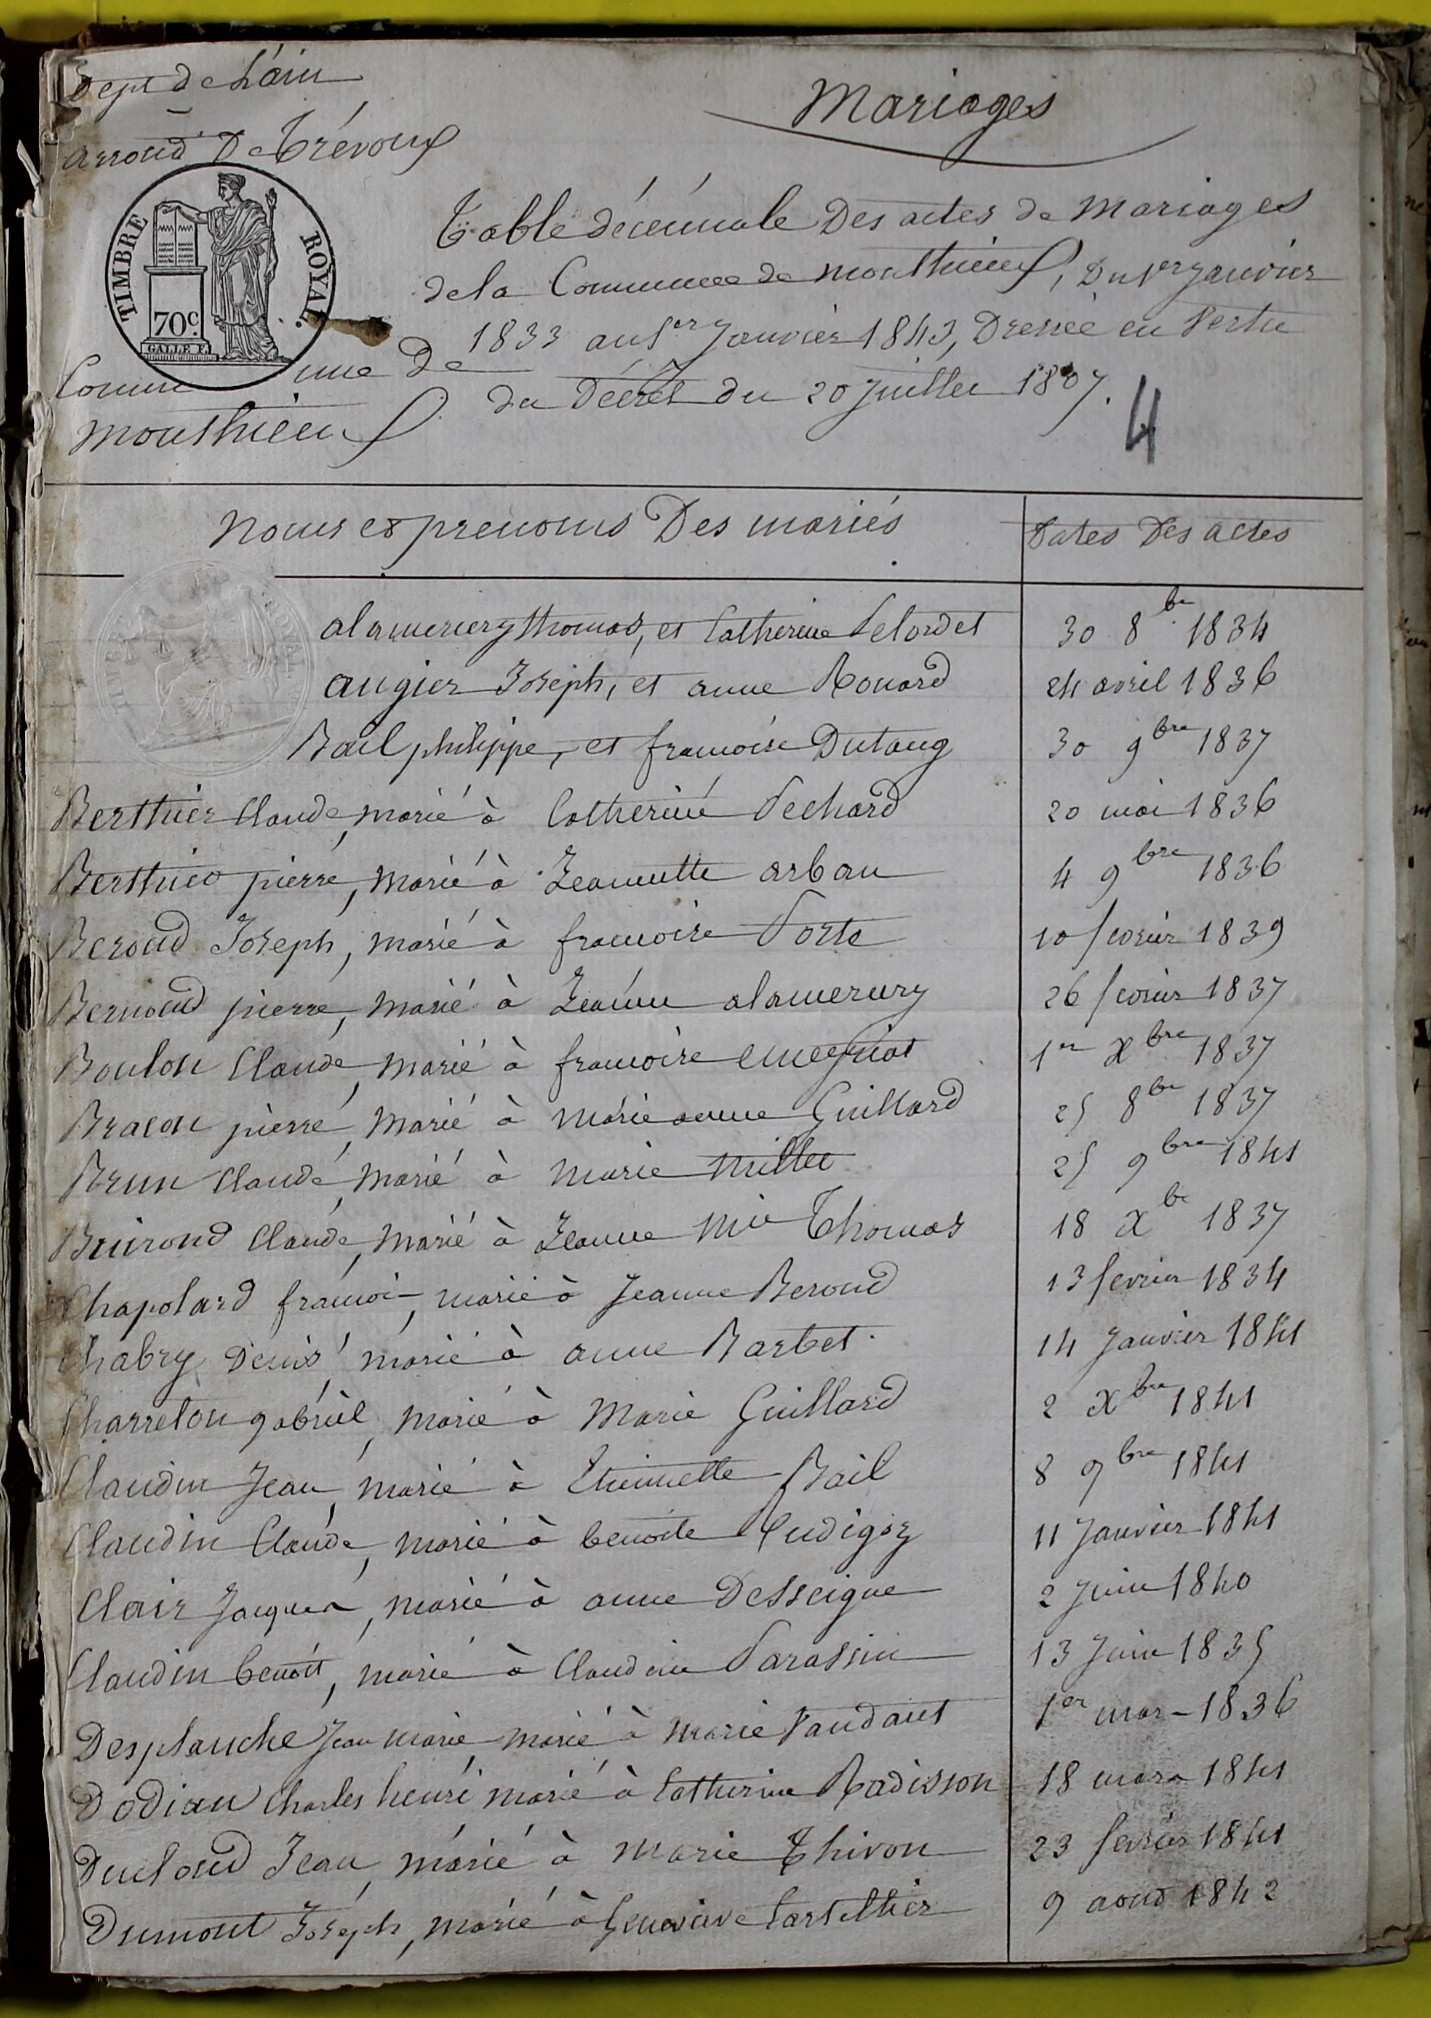 Dept de L'ain
Mariages
arrond' De Trévoux
TIMBRE ROYAL.
70c.
Table décennale Des actes de Mariages
de la Commune de Monthieux, Du 1er Janvier
1833 au 1er Janvier 1843, Dressée en Vertu
du Décret du 20 Juillet 1807.
Commune De
Monthieux
4
Noms et prenoms Des mariés
Dates Des actes
alamercery thomas, et Catherine Pelordet 30 8bre 1834
augier Joseph, et anne Rouard 24 avril 1836
Bail philippe, et francoise Dutang 30 9bre 1837
Berthier Claude, marié à Catherine Pechard 20 mai 1836
Berthier pierre, marié à Jeannette arban 4 9bre 1836
Beroud Joseph, marié à francoise Porte 10 fevrier 1839
Bernoud pierre, marié à Jeanne alamercery 26 fevrier 1837
Boulon Claude, marié à francoise 1er Xbre 1837
Bracon pierre, marié à marie anne Guillard 25 8bre 1837
Brun Claude, marié à marie millet 25 9bre 1841
Buirond Claude, marié à Jeanne Mie Thomas 18 Xbre 1837
Chapolard francois, marié à Jeanne Beroud 13 fevrier 1834
Chabry Denis, marié à anne Barbet 14 Janvier 1841
Charreton gabriel, marié à Marie Guillard 2 Xbre 1841
Claudin Jean, marié à Etiennette Bail 8 9bre 1841
Claudin Claude, marié à benoite Rudigoz 11 Janvier 1841
Clair Jacques, marié à anne Desseigne 2 Juin 1840
Claudin benoit, marié à Claudine Parassin 13 Juin 1835
Desplanche Jean marie, marié à marie Vaudant 1er mars 1836
Dodian Charles henri marié à Catherine Radisson 18 mars 1841
Ducloud Jean, marié à Marie Thivon 23 fevrier 1841
Dumont Joseph, marié à Genevieve Cartellier 9 aout 1842